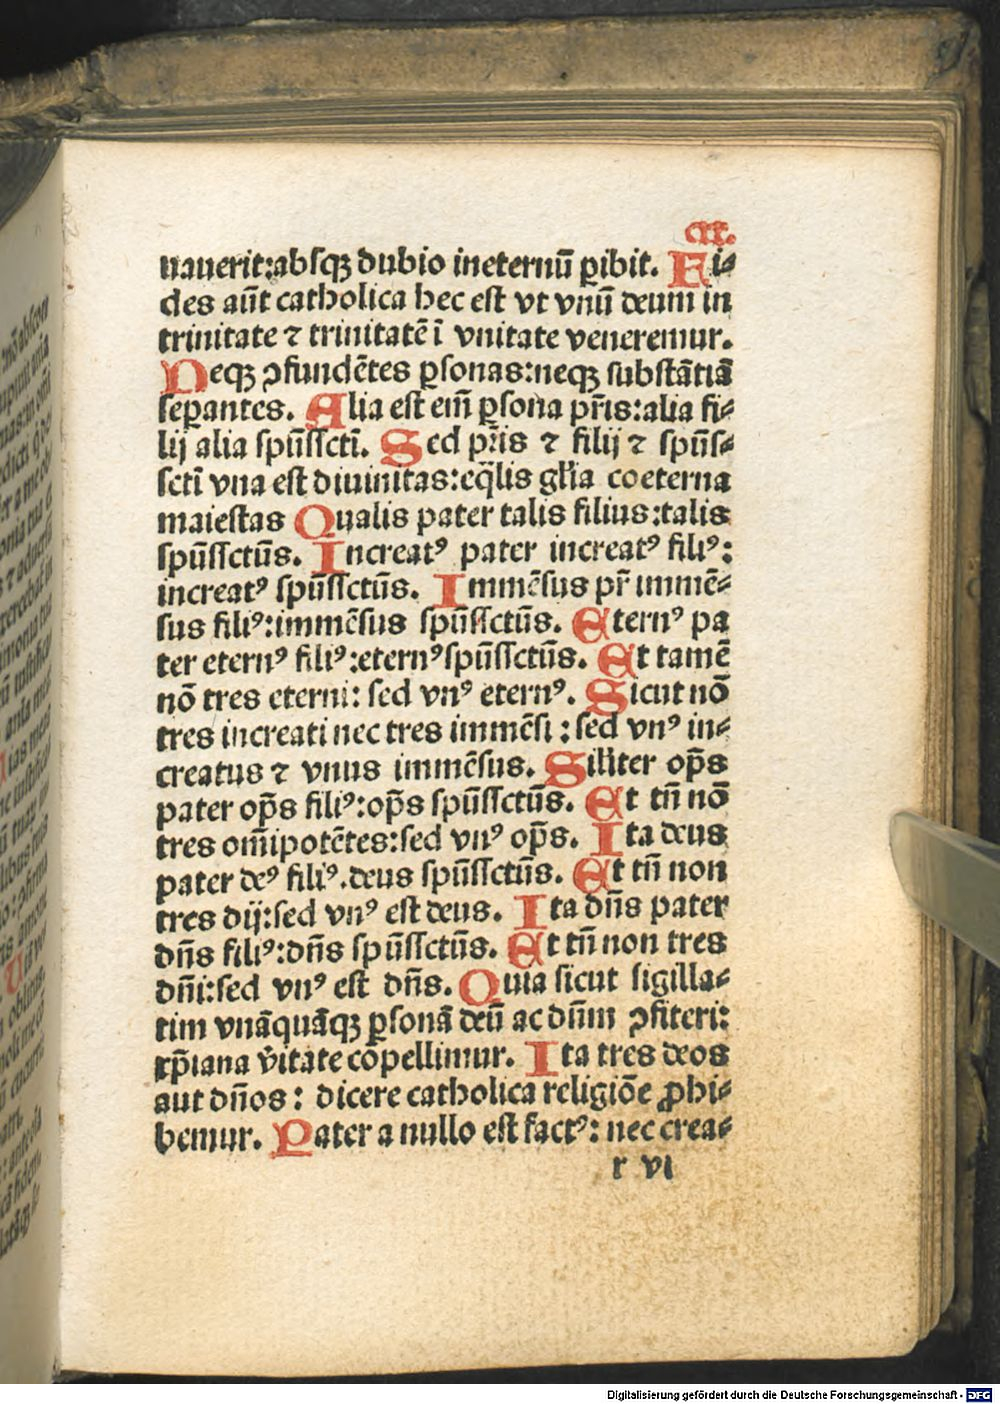 cxx.
uauerit:absqꝫ dubio ineternū ꝑibit. Fi⸗
des aūt catholica hec est vt vnū deum in
trinitate ⁊ trinitatē ī vnitate veneremur.
Neqꝫ ꝯfundētes ꝑsonas:neqꝫ substātiā
seꝑantes. Alia est em̄ ꝑsona pr̄is:alia fi⸗
lij alia spūssctī. Sed pr̄is ⁊ filij ⁊ spūs⸗
sctī vna est diuinitas:eq̄lis gl̄ia coeterna
maiestas Qualis pater talis filius:talis
spūssctūs. Increatꝰ pater increatꝰ filiꝰ:
increatꝰ spūssctūs. Immēsus pr̄ immē⸗
sus filiꝰ:immēsus spūssctūs. Eternꝰ pa
ter eternꝰ filiꝰ:eternꝰspūssctūs. Et tamē
nō tres eterni: sed vnꝰ eternꝰ. Sicut nō
tres increati nec tres immēsi : sed vnꝰ in⸗
creatus ⁊ vnus immēsus. Sil̄iter op̄s
pater op̄s filiꝰ:op̄s spūssctūs. Et tn̄ nō
tres om̄ipotētes:sed vnꝰ op̄s. Ita deus
pater deꝰ filiꝰ.deus spūssctūs. Et tn̄ non
tres dij:sed vnꝰ est deus. Ita dn̄s pater
dn̄s filiꝰ:dn̄s spūssctūs. Et tn̄ non tres
dn̄i:sed vnꝰ est dn̄s. Quia sicut sigilla⸗
tim vnāquāqꝫ ꝑsonā deū ac dn̄m ꝯfiteri:
xp̄iana v̄itate cōpellimur. Ita tres deos
aut dn̄os : dicere catholica religiōe ꝓhi⸗
bemur. Pater a nullo est factꝰ: nec crea⸗
r vi
Digitalisierung gefördert durch die Deutsche Forschungsgemeinschaft - DFG